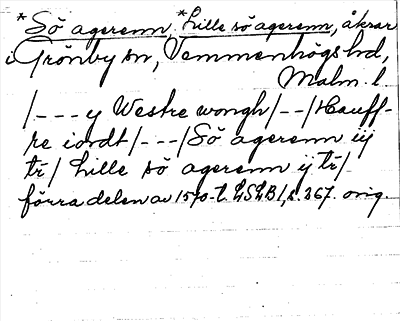 *Sö agerenn, *Lille sö agerenn, åkrar
i Grönby sn, Vemmenhögs hd,
Malm. l
/--- y Westre wongh/--/Hauff-
re iordt/---/Sö agerenn iij
tr/ Lille sö agerenn ij tr/
förra delen av 1570-t. LSLB I, s. 367. orig.